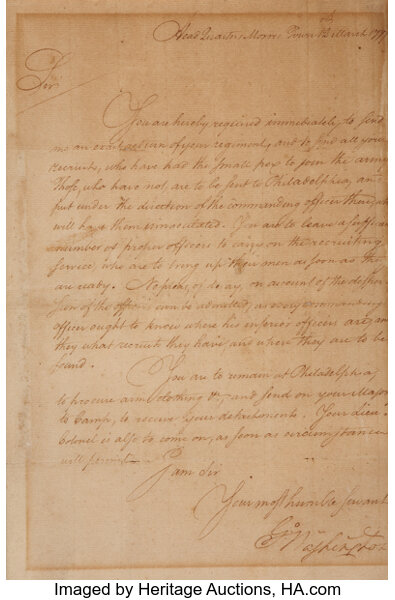 Head Quarters Morris Town 12 March 1777
Sir
You are hereby required immediately, to send
me an exact return of your regiment, and to send all your
recruits, who have had the small pox to join the army
Those, who have not, are to be sent to Philadelphia, and
put under the direction of the commanding officer there, who
will have them innoculated. You are to leave a sufficient
number of proper officers to carry on the recruiting
service, who are to bring up their men as soon as they
are ready. No plea, of delay, on account of the disper
sion of the officers can be admitted, as every commanding
officer ought to know where his inferior officers are, and
they what recruits they have and where they are to be
found.
You are to remain at Philadelphia,
to procure arms, clothing &c, and send on your Major
to Camp, to receive your detachments. Your Lieut
Colonel is also to come on, as soon as circumstances
will permit
I am Sir
Your most humble Servant
Go Washington
Imaged by Heritage Auctions, HA.com